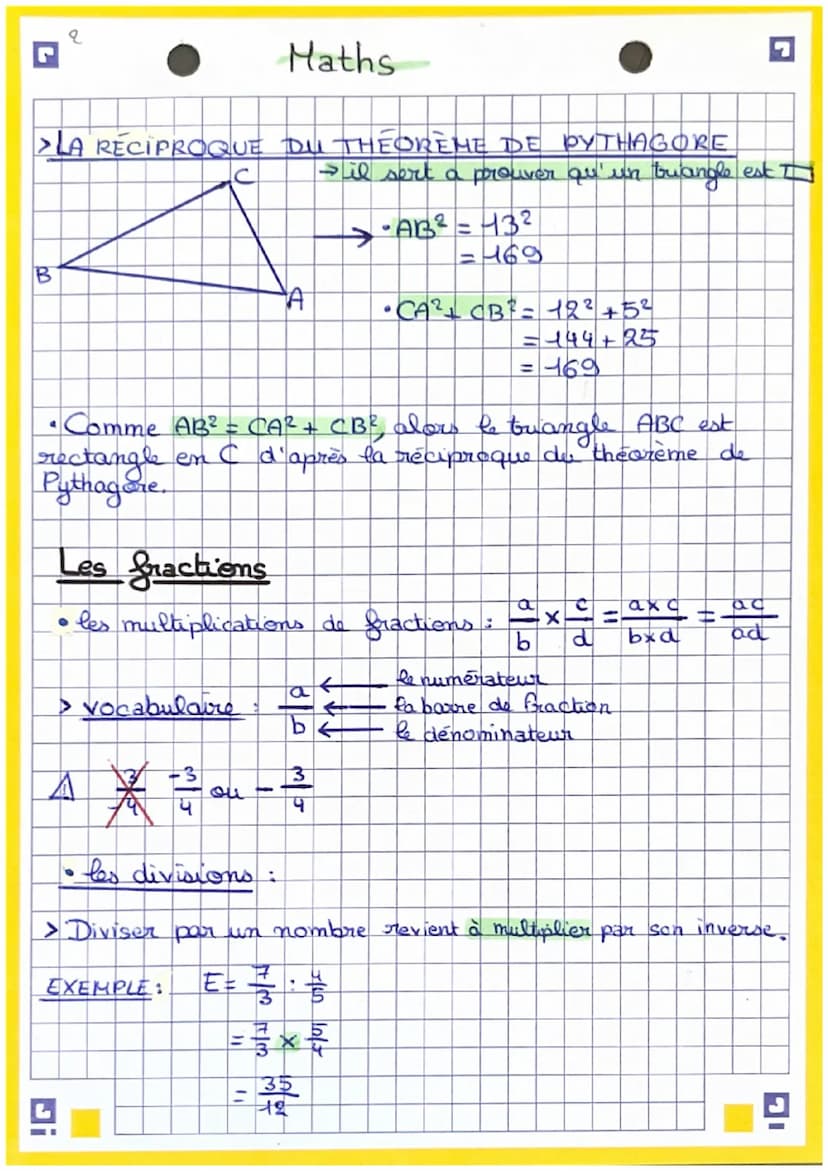 2
Maths
>LA RÉCIPROQUE DU THÉORÈME DE PYTHAGORE
→ il sert a prouver qu'un triangle est
C
B
A
→ • AB² = 13²
= 169
• CA² + CB² = 12² + 5²
= 144 + 25
= 169
• Comme AB² = CA² + CB², alors le triangle ABC est
rectangle en C d'après la réciproque du théorème de
Pythagore.
Les fractions
• les multiplications de fractions : a/b × c/d = a×c/b×d = ac/ad
> vocabulaire : a/b
← le numérateur
← la barre de fraction
← le dénominateur
⚠ 3/-4 -3/4 ou - 3/4
• les divisions :
> Diviser par un nombre revient à multiplier par son inverse.
EXEMPLE : E = 7/3 : 4/5
= 7/3 × 5/4
= 35/12